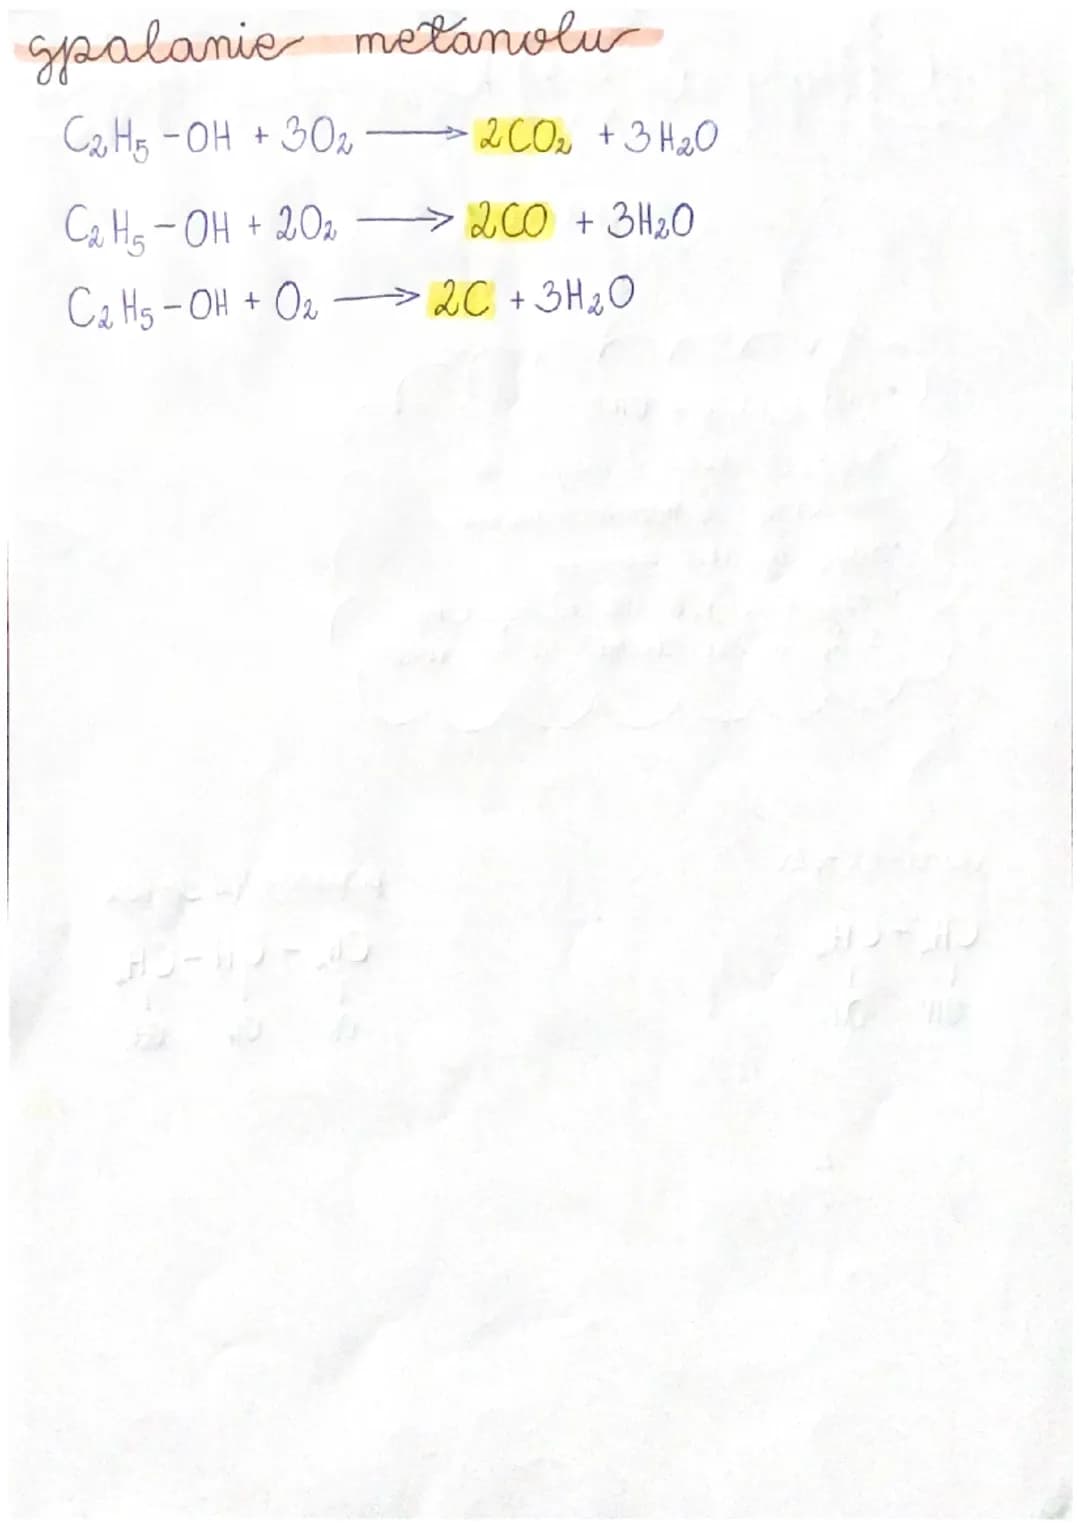 spalanie metanolu
C₂H₅ - OH + 3O₂ ⟶ 2CO₂ + 3H₂O
C₂H₅ - OH + 2O₂ ⟶ 2CO + 3H₂O
C₂H₅ - OH + O₂ ⟶ 2C + 3H₂O